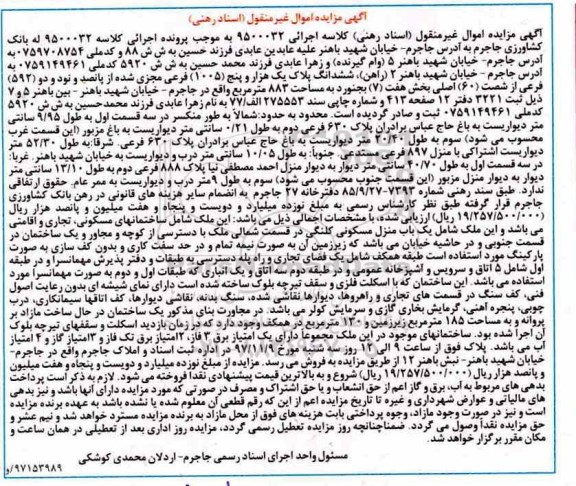 آگهی مزایده اموال غیرمنقول (اسناد رهنی)
آگهی مزایده اموال غیرمنقول (اسناد رهنی) کلاسه اجرائی ۹۵۰۰۰۳۲ به موجب پرونده اجرائی کلاسه ۹۵۰۰۰۳۲ له بانک
کشاورزی جاجرم به آدرس جاجرم- خیابان شهید باهنر علیه عابدین عابدی فرزند حسین به ش ش ۸۸ و کدملی ۰۷۵۹۷۰۸۷۵۴ به
آدرس جاجرم- خیابان شهید باهنر ۵ (وام گیرنده) و زهرا عابدی فرزند محمد حسین به ش ش ۵۹۲۰ کدملی ۰۷۵۹۱۴۹۴۶۱ به
آدرس جاجرم- خیابان شهید باهنر ۲ (راهن)، ششدانگ پلاک یک هزار و پنج (۱۰۰۵) فرعی مجزی شده از پانصد و نود و دو (۵۹۲)
فرعی از شصت (۶۰) اصلی بخش هفت (۷) بجنورد به مساحت ۸۸۳ مترمربع واقع در جاجرم - خیابان شهید باهنر - بین باهنر ۵ و ۷
ذیل ثبت ۳۲۲۱ دفتر ۱۲ صفحه ۴۱۳ و شماره چاپی سند ۲۷۵۵۵۳ الف/۷۷ به نام زهرا عابدی فرزند محمدحسین به ش ش ۵۹۲۰
کدملی ۰۷۵۹۱۴۹۴۶۱ ثبت و صادر گردیده است. محدود به حدود:شمالاً به طور منکسر در سه قسمت اول به طول ۹/۹۵ سانتی
متر دیواریست به باغ حاج عباس برادران پلاک ۶۳۰ فرعی دوم به طول ۰/۲۱ سانتی متر دیواریست به باغ مزبور (این قسمت غرب
محسوب می شود) سوم به طول ۲/۴۰ متر دیواریست به باغ حاج عباس برادران پلاک ۶۳۰ فرعی. شرقاً:به طول ۵۲/۳۰ متر
دیواریست اشتراکی با منزل ۸۹۷ فرعی مفروزی. جنوباً: به طول ۱۰/۰۵ سانتی متر درب و دیواریست به خیابان شهید باهنر. غرباً:
در سه قسمت اول به طول ۴۰/۷۰ سانتی متر دیوار به دیوار منزل احمد مصطفی نیا پلاک ۸۸۸ فرعی دوم به طول ۱۳/۱۰ سانتی متر
دیوار به دیوار منزل مزبور (این قسمت جنوب محسوب می شود) سوم به طول ۹ متر درب و دیواریست به ممر عام. حقوق ارتفاقی
ندارد. طبق سند رهنی شماره ۷۳۹۳-۸۵/۹/۲۷ دفترخانه ۲۷ جاجرم به انضمام سایر هزینه های قانونی در رهن بانک کشاورزی
جاجرم قرار گرفته طبق نظر کارشناس رسمی به مبلغ نوزده میلیارد و دویست و پنجاه و هفت میلیون و پانصد هزار ریال
(۱۹/۲۵۷/۵۰۰/۰۰۰ ریال) ارزیابی شده، با مشخصات اجمالی ذیل می باشد: این ملک شامل ساختمانهای مسکونی، تجاری و اقامتی
می باشد و این ملک شامل یک باب منزل مسکونی کلنگی در قسمت شمالی ملک با دسترسی از کوچه و مجاور و یک ساختمان در
قسمت جنوبی و در حاشیه خیابان می باشد که زیرزمین آن به صورت نیمه تمام و در حد سفت کاری و بدون کف سازی به صورت
پارکینگ مورد استفاده است طبقه همکف شامل یک فضای تجاری و راه پله دسترسی به طبقات و دفتر پذیرش مهمانسرا و در طبقه
اول شامل ۵ اتاق و سرویس و آشپزخانه عمومی و در طبقه دوم سه اتاق و یک انباری که طبقات اول و دوم به صورت مهمانسرا مورد
استفاده می باشد. این ساختمان که با اسکلت فلزی و سقف تیرچه بلوک ساخته شده است دارای نمای شیشه ای بدون رعایت اصول
فنی، کف سنگ در قسمت های تجاری و راهروها، دیوارها نقاشی شده، سنگ بدنه، نقاشی دیوارها، کف اتاقها سیمانکاری، درب
چوبی، پنجره آهنی، گرمایش بخاری گازی و سرمایش کولر می باشد. در مجاورت بنای مذکور یک ساختمان در حال ساخت مازاد بر
پروانه و به مساحت ۱۸۵ مترمربع زیرزمین و ۱۴۰ مترمربع در همکف وجود دارد که در زمان بازدید اسکلت و سقفهای تیرچه بلوک
آن اجرا شده بود. ساختمانهای موجود در این ملک مجموعاً دارای یک امتیاز برق ۳ فاز، ۲امتیاز برق تک فاز و ۳امتیاز گاز و ۴ امتیاز
آب می باشد. پلاک فوق از ساعت ۹ الی ۱۲ روز سه شنبه مورخ ۹۷/۸/۲۲ در اداره ثبت اسناد و املاک جاجرم واقع در جاجرم-
خیابان شهید باهنر- نبش باهنر ۱۲ از طریق مزایده به فروش می رسد. مزایده از مبلغ نوزده میلیارد و دویست و پنجاه و هفت میلیون
و پانصد هزار ریال (۱۹/۲۵۷/۵۰۰/۰۰۰ ریال) شروع و به بالاترین قیمت پیشنهادی نقداً فروخته می شود. لازم به ذکر است پرداخت
بدهی های مربوط به آب، برق و گاز اعم از حق انشعاب و یا حق اشتراک و مصرف در صورتی که مورد مزایده دارای آنها باشد و نیز بدهی
های مالیاتی و عوارض شهرداری و غیره تا تاریخ مزایده اعم از این که رقم قطعی آن معلوم شده یا نشده باشد به عهده برنده مزایده
است و نیز در صورت وجود مازاد، وجوه پرداختی بابت هزینه های فوق از محل مازاد به برنده مزایده مسترد خواهد شد و نیم عشر و
حق مزایده نقداً وصول می گردد. ضمناً چنانچه روز مزایده تعطیل رسمی گردد، مزایده روز اداری بعد از تعطیلی در همان ساعت و
مکان مقرر برگزار خواهد شد.
مسئول واحد اجرای اسناد رسمی جاجرم- اردلان محمدی کوشکی
۹۷۱۵۳۹۸۹/و